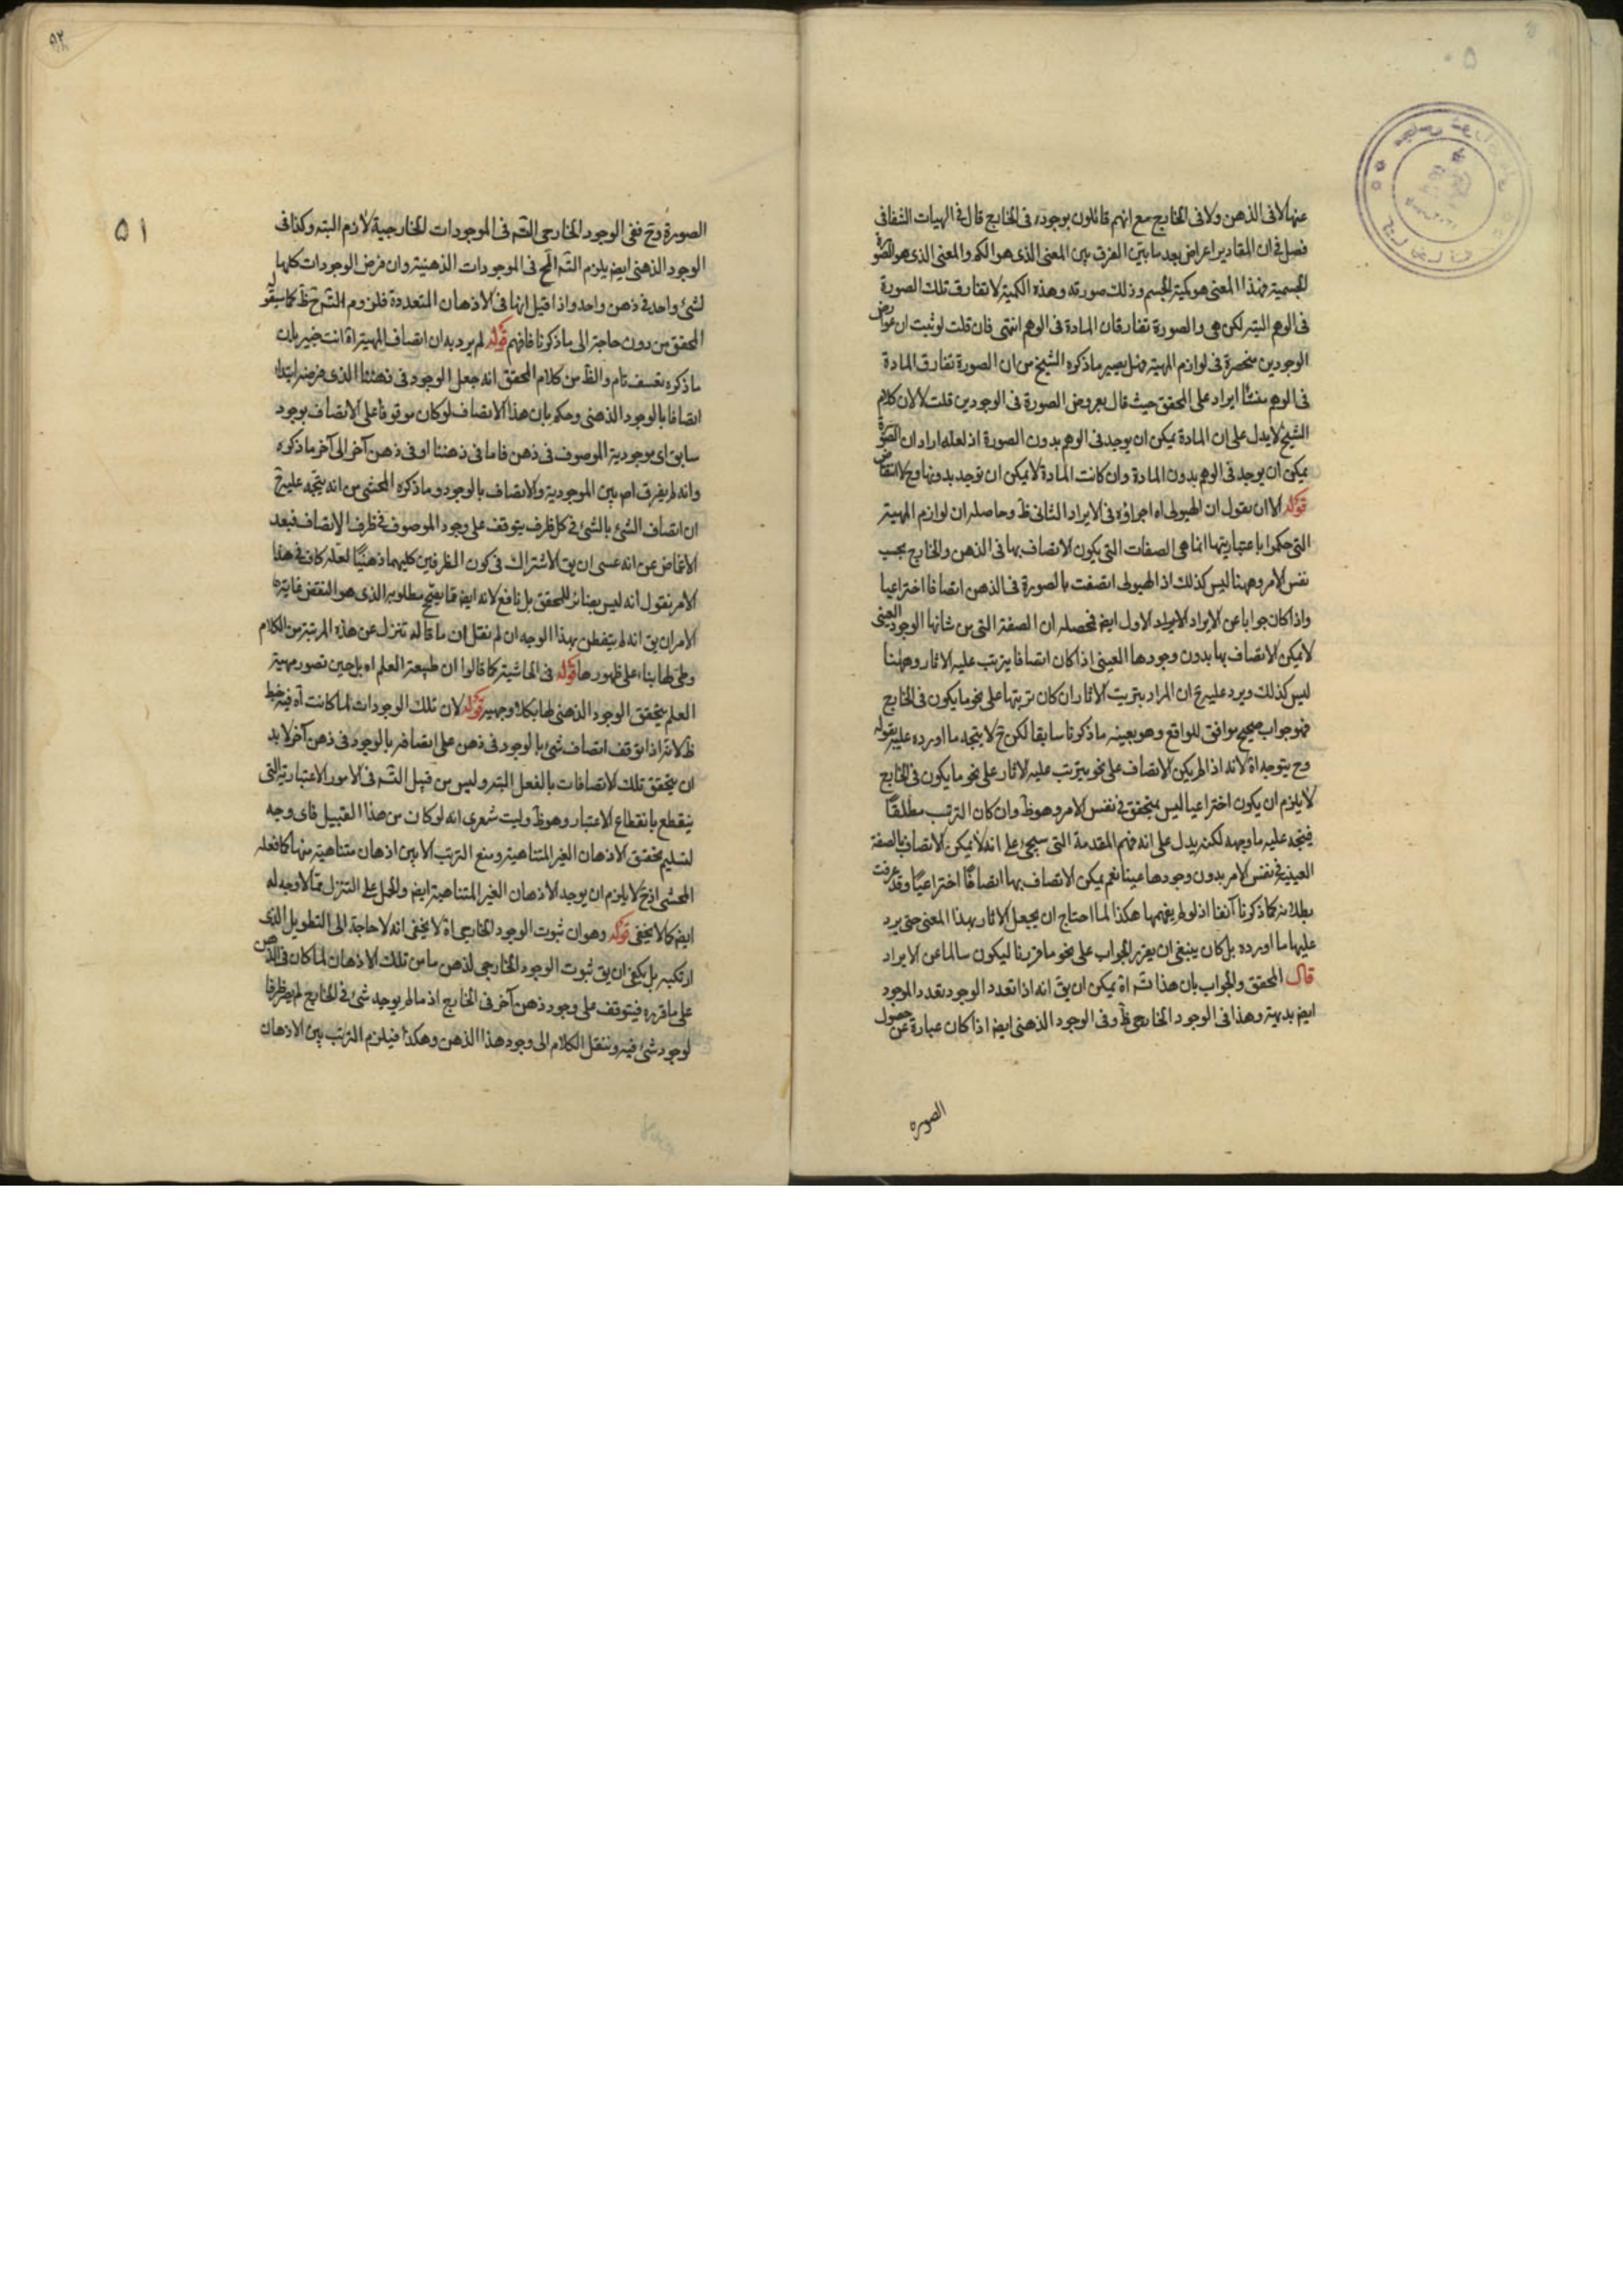 عنها لا فى الذهن ولا فى الخارج مع انهم قائلون بوجوده فى الخارج قال فى الهيات الشفا فى
فصل فى ان المقادير اعراض بعد ما بيّن الفرق بين المعنى الذى هو الكم والمعنى الذى هو الصورة
الجسمية فهذا المعنى هو كمية الجسم وذلك صورته وهذه الكمية لا تفارق تلك الصورة
فى الوهم البتة لكن هى والصورة تفارقان المادة فى الوهم انتهى فان قلت لو ثبت ان عوارض
الوجودين منحصرة فى لوازم المهية فهل يصير ما ذكره الشيخ من ان الصورة تفارق المادة
فى الوهم منشأ ايراد على المحقق حيث قال بعروض الصورة فى الوجودين قلت لا لان كلام
الشيخ لا يدل على ان المادة يمكن ان يوجد فى الوهم بدون الصورة اذ لعله اراد ان الصورة
يمكن ان يوجد فى الوهم بدون المادة وان كانت المادة لا يمكن ان توجد بدونها وح لا انتقاض
قوله الا ان نقول ان الهيولى اه اجراؤه فى الايراد الثانى ظ وحاصله ان لوازم المهية
التى حكموا باعتباريتها انما هى الصفات التى يكون الاتصاف بها فى الذهن والخارج بحسب
نفس الامر وههنا ليس كذلك اذ الهيولى اتصفت بالصورة فى الذهن اتصافا اختراعيا
واذا كان جوابا عن الايراد الاول ايض فمحصله ان الصفة التى من شانها الوجود العينى
لا يمكن الاتصاف بها بدون وجودها العينى اذا كان اتصافا يترتب عليه الاثار وههنا
ليس كذلك ويرد عليه ح ان المراد بترتب الاثار ان كان ترتبها على نحو ما يكون فى الخارج
فهو جواب صحيح موافق للواقع وهو بعينه ما ذكرنا سابقا لكن ح لا يتجه ما اورده عليه بقوله
وح يتوجه اه لانه اذا لم يكن الاتصاف على نحو يترتب عليه الاثار على نحو ما يكون فى الخارج
لا يلزم ان يكون اختراعيا ليس بمتحقق فى نفس الامر وهو ظ وان كان الترتب مطلقًا
فيتجه عليه ما وجهه لكنه يدل على انه فهم المقدمة التى سيجئ على انه لا يمكن الاتصاف بالصفة
العينية فى نفس الامر بدون وجودها عينا نعم يمكن الاتصاف بها اتصافًا اختراعيًا وقد عرفت
بطلانه كما ذكرنا آنفا اذ لو لم يفهمها هكذا لما احتاج ان يجعل الاثار بهذا المعنى حتى يرد
عليها ما اورده بل كان ينبغى ان يقرر الجواب على نحو ما قررنا ليكون سالما عن الايراد
قال المحقق والجواب بان هذا اه يمكن ان يق انه اذا تعدد الوجود تعدد الموجود
ايض بديهة وهذا فى الوجود الخارجى ظ وفى الوجود الذهنى ايض اذا كان عبارة عن حصول
الصوره
٥١
الصورة وح ففى الوجود الخارجى التس فى الموجودات الخارجية لازم البتة وكذا فى
الوجود الذهنى ايض يلزم التس المح فى الموجودات الذهنية وان فرض الوجودات كلها
لشئ واحد فى ذهن واحد واذا قيل انها فى الاذهان المتعددة فلزوم التس ح ظ كما سيقوله
المحقق من دون حاجة الى ما ذكرنا فافهم قوله لم يرد به ان اتصاف المهية اه انت خبير بان
ما ذكره تعسف تام والظ من كلام المحقق انه جعل الوجود فى ذهننا الذى فرضه ابتداء
اتصافا بالوجود الذهنى وحكم بان هذا الاتصاف لو كان موقوفا على الاتصاف بوجود
سابق اى بوجودية الموصوف فى ذهن فاما فى ذهننا او فى ذهن آخر الى آخر ما ذكره
وانه لم يفرق اص بين الموجودية والاتصاف بالوجود وما ذكره المحشى من انه يتجه عليه ح
ان اتصاف الشئ بالشئ فى كل ظرف يتوقف على وجود الموصوف فى ظرف الاتصاف فبعد
الاغماض عن انه عسى ان يق الاشتراك فى كون الظرفين كليهما ذهنيًا لعله كاف فى هذا
الامر نقول انه ليس بضائر للمحقق بل نافع لانه ايض مما ينتج مطلوبه الذى هو النقض غاية
الامر ان يق انه لم يتفطن بهذا الوجه ان لم نقل ان ما قاله تنزل عن هذه المرتبة من الكلام
وطى لها بناء على ظهورها قوله فى الحاشية كما قالوا ان طبيعة العلم اه بل حين تصور مهية
العلم يتحقق الوجود الذهنى لها بكلا وجهيه قوله لان تلك الوجودات لما كانت اه فيه خبط
ظ لانه اذا توقف اتصاف شئ بالوجود فى ذهن على اتصافه بالوجود فى ذهن آخر لا بد
ان يتحقق تلك الاتصافات بالفعل البتة وليس من قبيل التس فى الامور الاعتبارية التى
ينقطع بانقطاع الاعتبار وهو ظ وليت شعرى انه لو كان من هذا القبيل فاى وجه
لتسليم تحقق الاذهان الغير المتناهية ومنع الترتب الا بين اذهان متناهية منها كما فعله
المحشى اذ ح لا يلزم ان يوجد الاذهان الغير المتناهية ايض والحمل على التنزل مما لا وجه له
ايض كما لا يخفى قوله وهو ان ثبوت الوجود الخارجى اه لا يخفى انه لا حاجة الى التطويل الذى
ارتكبه بل يكفى ان يق ثبوت الوجود الخارجى لذهن ما من تلك الاذهان لما كان فى الذهن
على ما قرره فيتوقف على وجود ذهن آخر فى الخارج اذ ما لم يوجد شئ فى الخارج لم يصر ظرفا
لوجود شئ فيه وننقل الكلام الى وجود هذا الذهن وهكذا فيلزم الترتب بين الاذهان